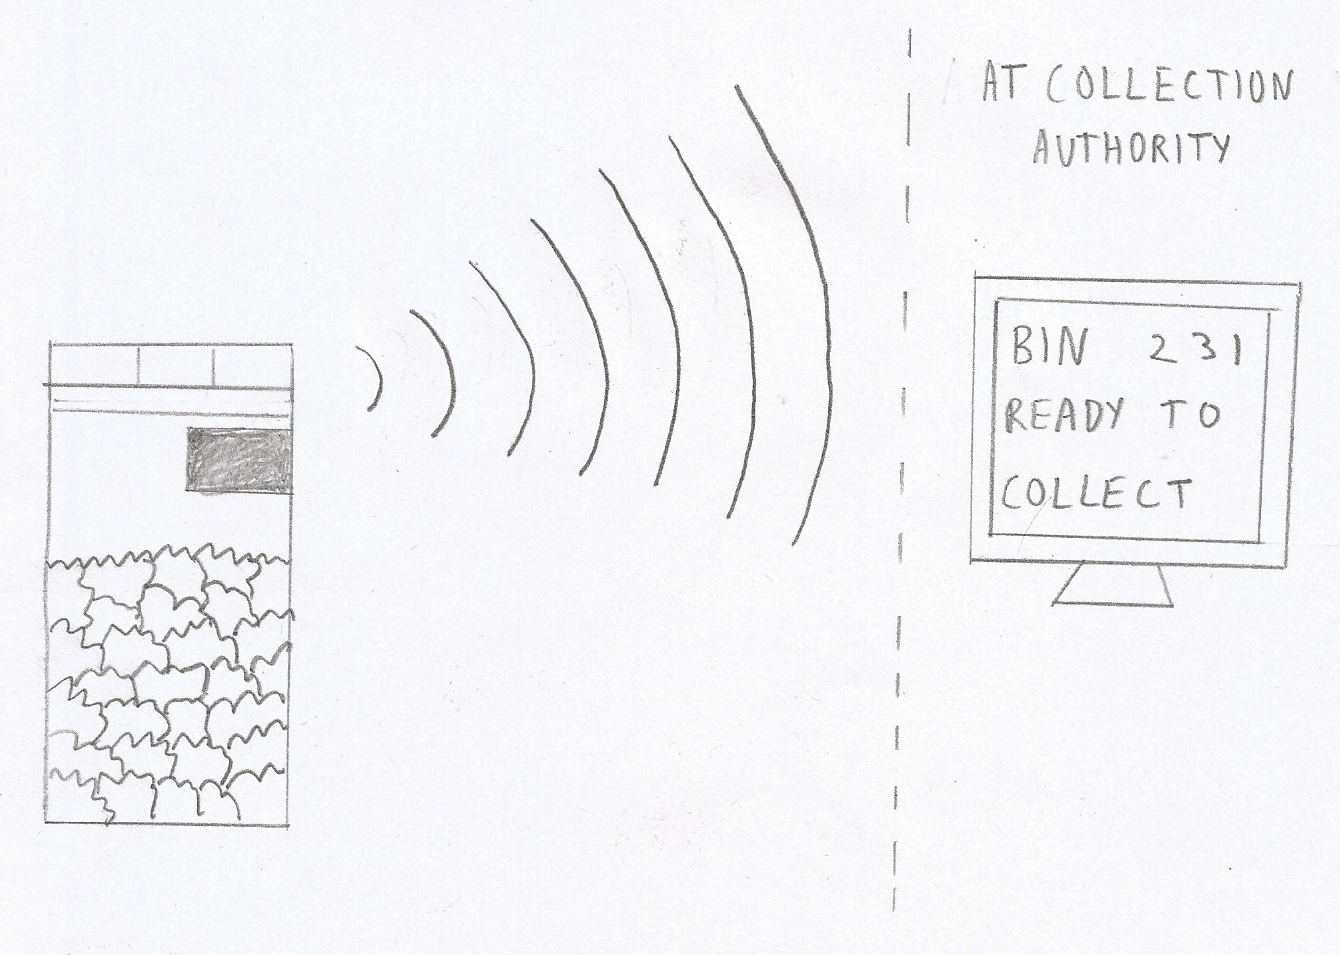 AT COLLECTION
AUTHORITY
BIN 231
READY TO
COLLECT